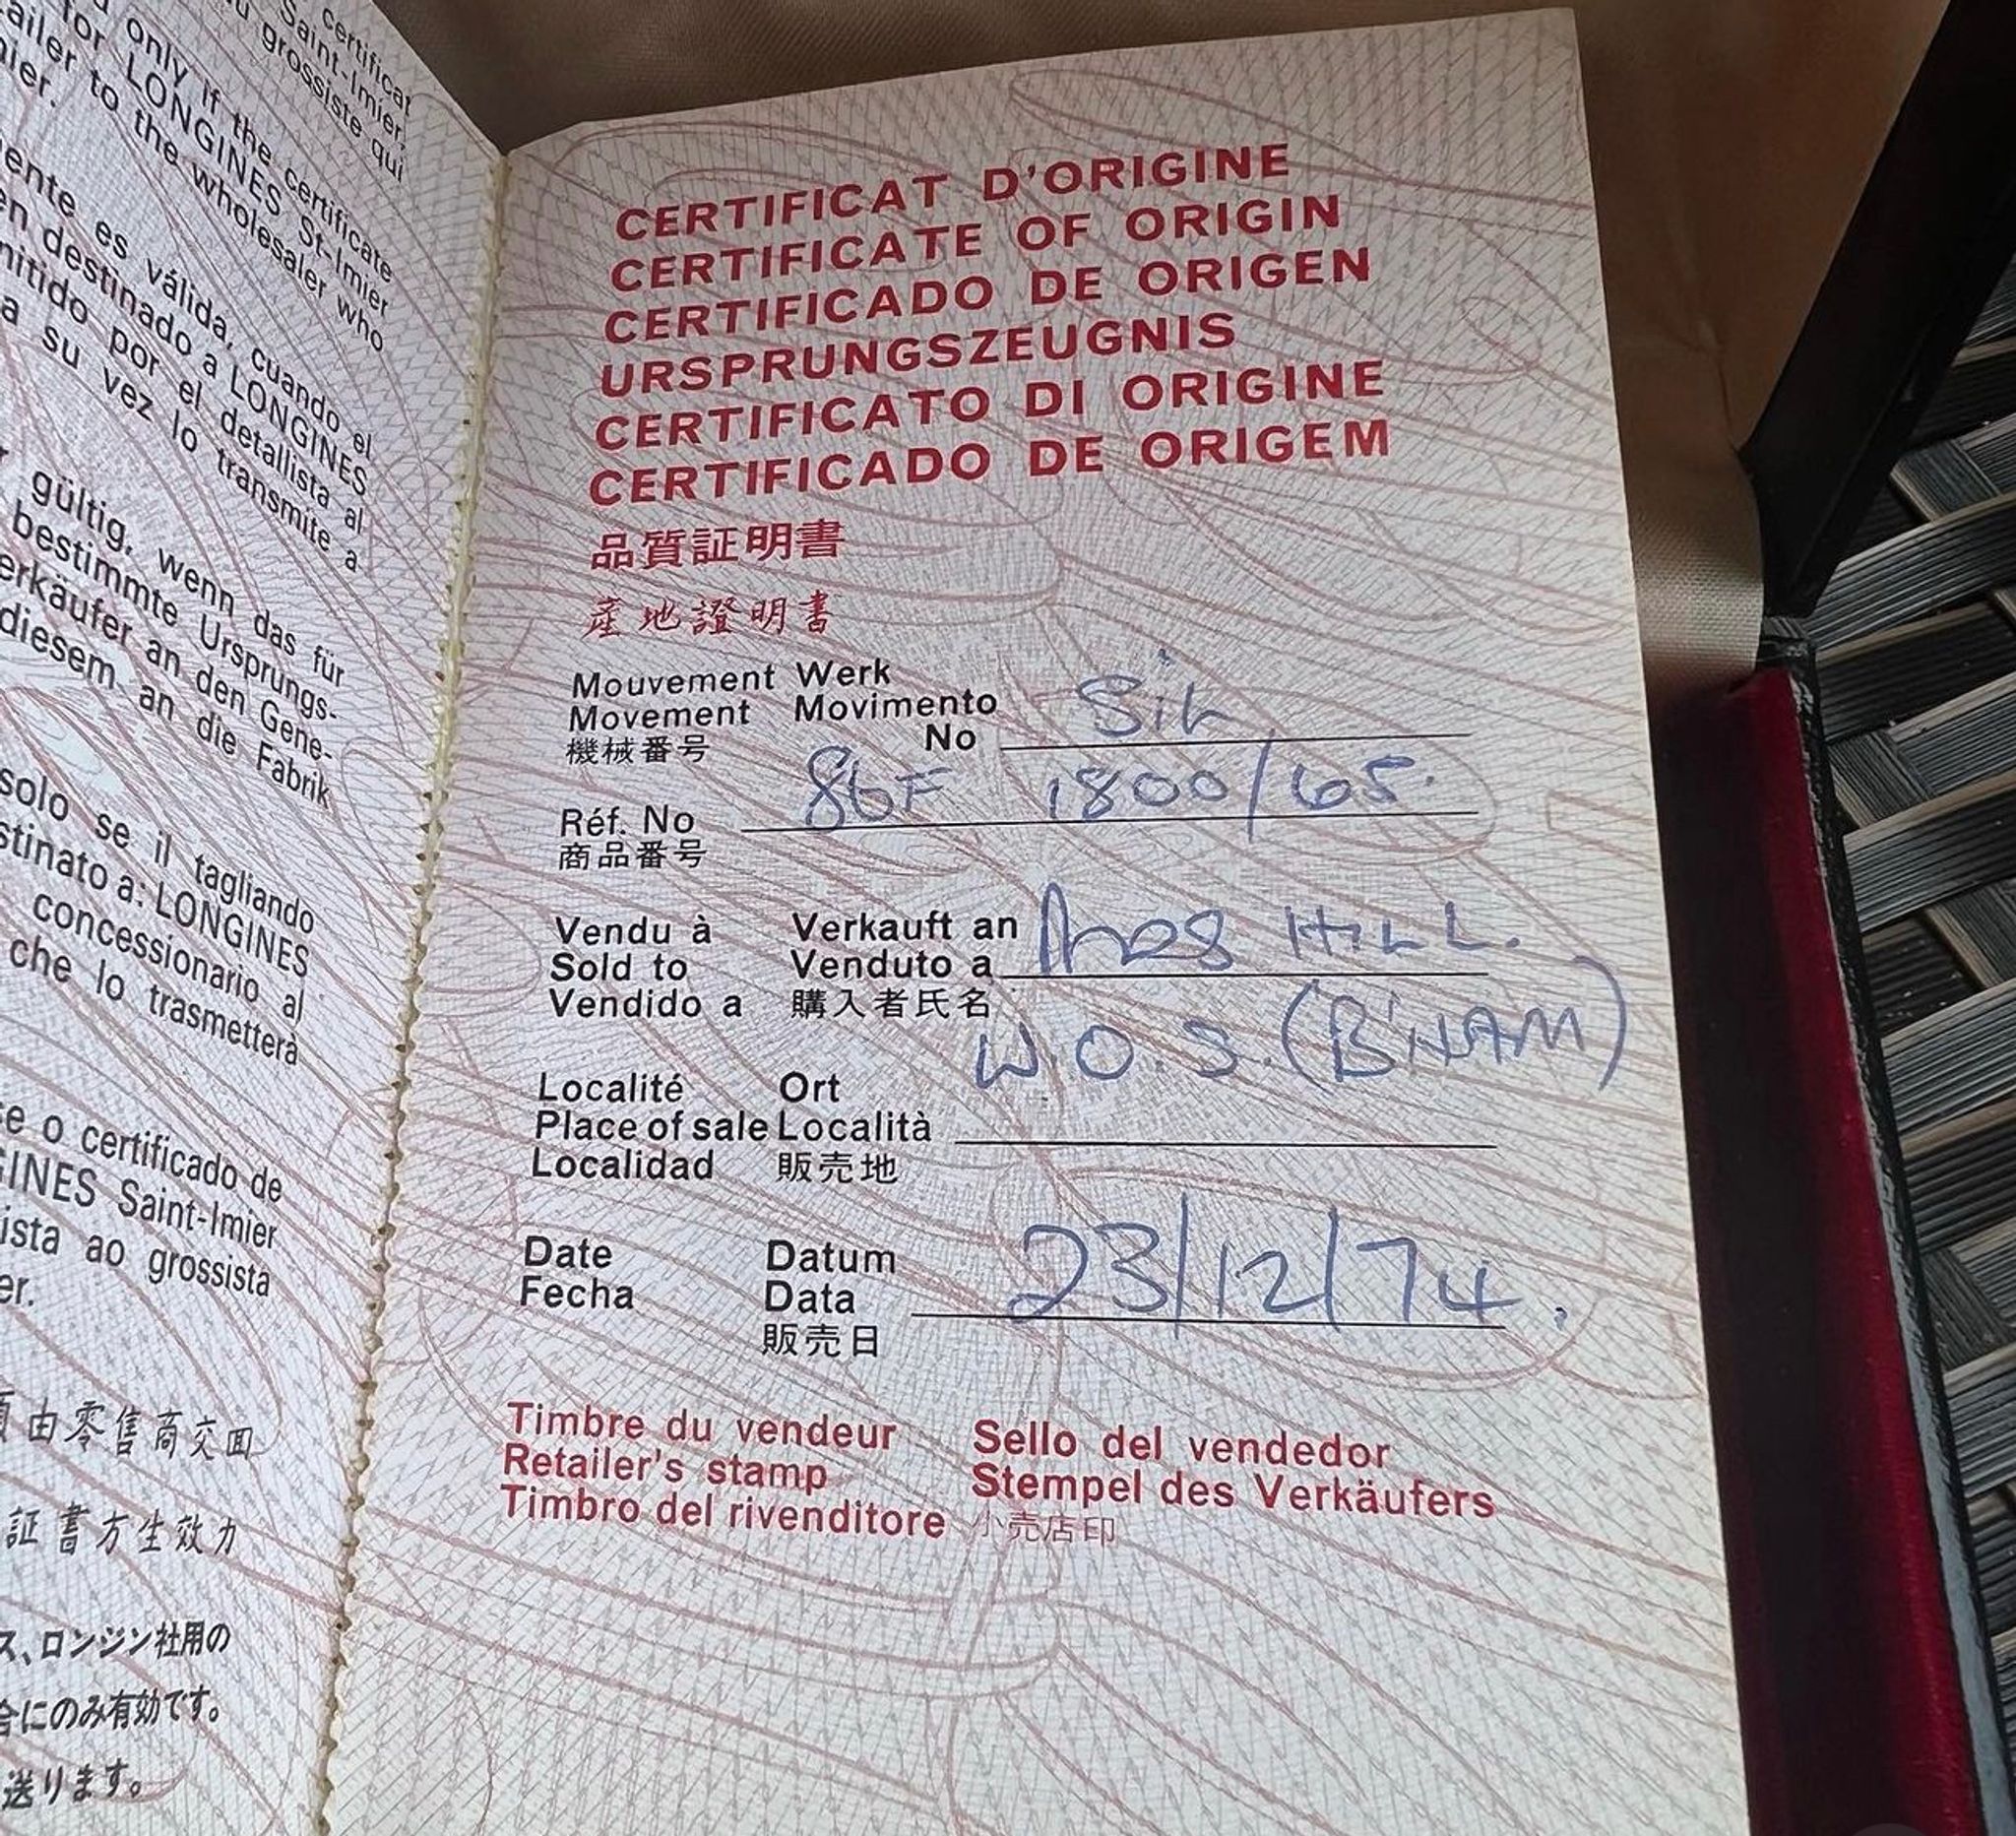 certificat
Saint-Imier,
grossiste qui
only if the certificate
for LONGINES St-Imier
ailer to the wholesaler who
ier.
ente es válida, cuando el
en destinado a LONGINES
mitido por el detallista al
a su vez lo transmite a
gültig, wenn das für
bestimmte Ursprungs-
erkäufer an den Gene-
diesem an die Fabrik
solo se il tagliando
stinato a: LONGINES
concessionario al
che lo trasmetterà
e o certificado de
GINES Saint-Imier
ista ao grossista
er.
由零售商交回
証書方生效力
ス、ロンジン社用の
合にのみ有効です。
送ります。
CERTIFICAT D'ORIGINE
CERTIFICATE OF ORIGIN
CERTIFICADO DE ORIGEN
URSPRUNGSZEUGNIS
CERTIFICATO DI ORIGINE
CERTIFICADO DE ORIGEM
品質証明書
産地證明書
Mouvement Werk
Movement Movimento
機械番号 No Sil
Réf. No 86F 1800/65.
商品番号
Vendu à Verkauft an
Sold to Venduto a HILL.
Vendido a 購入者氏名
W.O.S. (B'HAM)
Localité Ort
Place of sale Località
Localidad 販売地
Date Datum
Fecha Data 23/12/74.
販売日
Timbre du vendeur Sello del vendedor
Retailer's stamp Stempel des Verkäufers
Timbro del rivenditore 小売店印